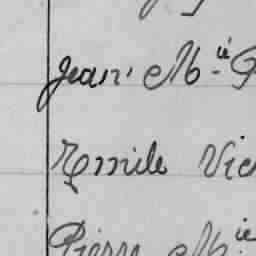 Jean M.ie
Emile Vic
Pierre M.ie